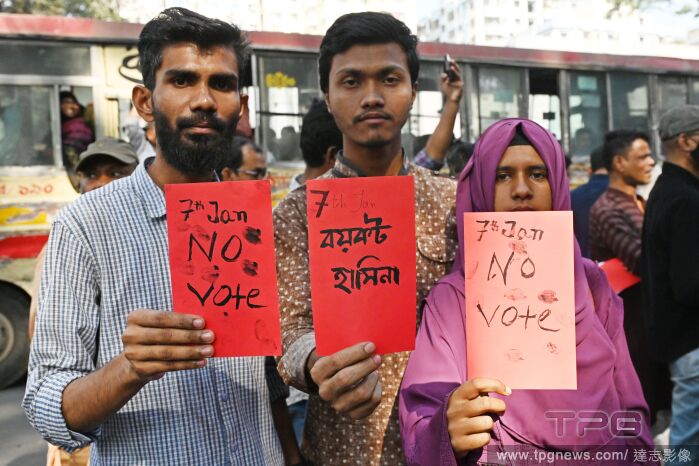 7th Jan
NO
Vote
7th Jan
বয়কট
হাসিনা
7th Jan
NO
Vote
TPG
www.tpgnews.com/達志影像